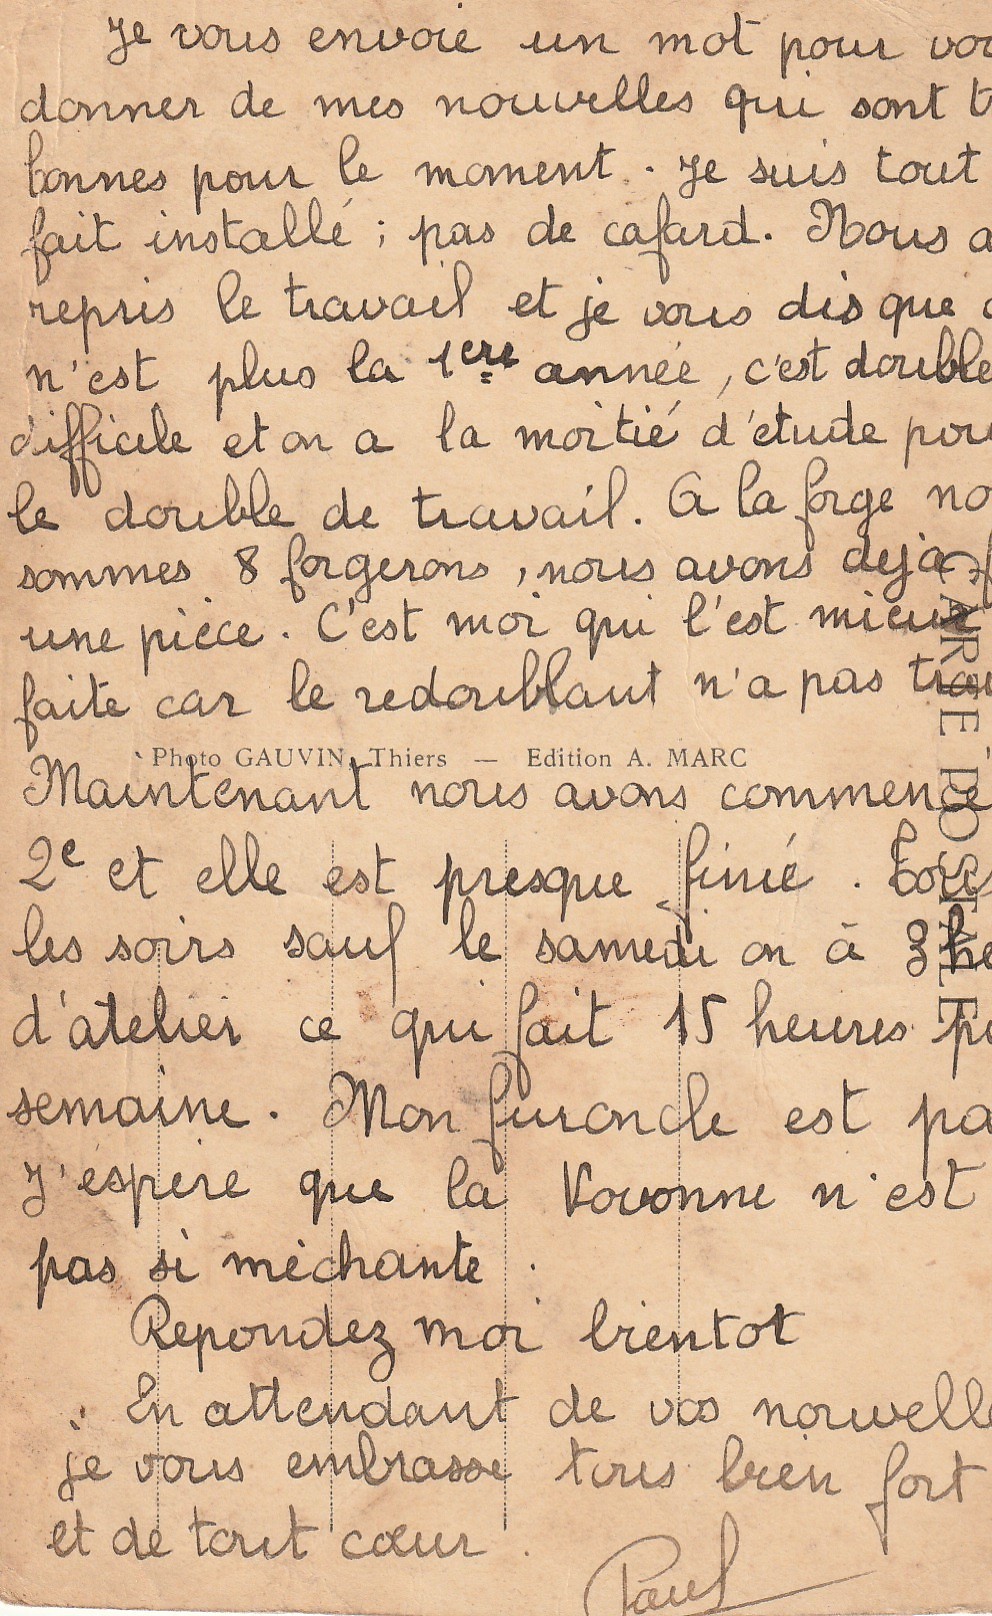 Je vous envoie un mot pour vou
donner de mes nouvelles qui sont t
bonnes pour le moment. Je suis tout
fait installé ; pas de cafard. Nous a
repris le travail et je vous dis que c
n'est plus la 1ere année, c'est double
difficile et on a la moitié d'étude pou
le double de travail. A la forge no
sommes 8 forgerons, nous avons deja f
une pièce. C'est moi qui l'est mieux
faite car le redoublant n'a pas trav
Photo GAUVIN, Thiers — Edition A. MARC
Maintenant nous avons commencé
2e et elle est presque finie. Tous
les soirs sauf le samedi on à 3 he
d'atelier ce qui fait 15 heures pa
semaine. Mon furoncle est pa
J'éspère que la Vovonne n'est
pas si méchante.
Repondez moi bientot
En attendant de vos nouvelle
je vous embrasse tous bien fort
et de tout cœur.
Paul
CARTE POSTALE